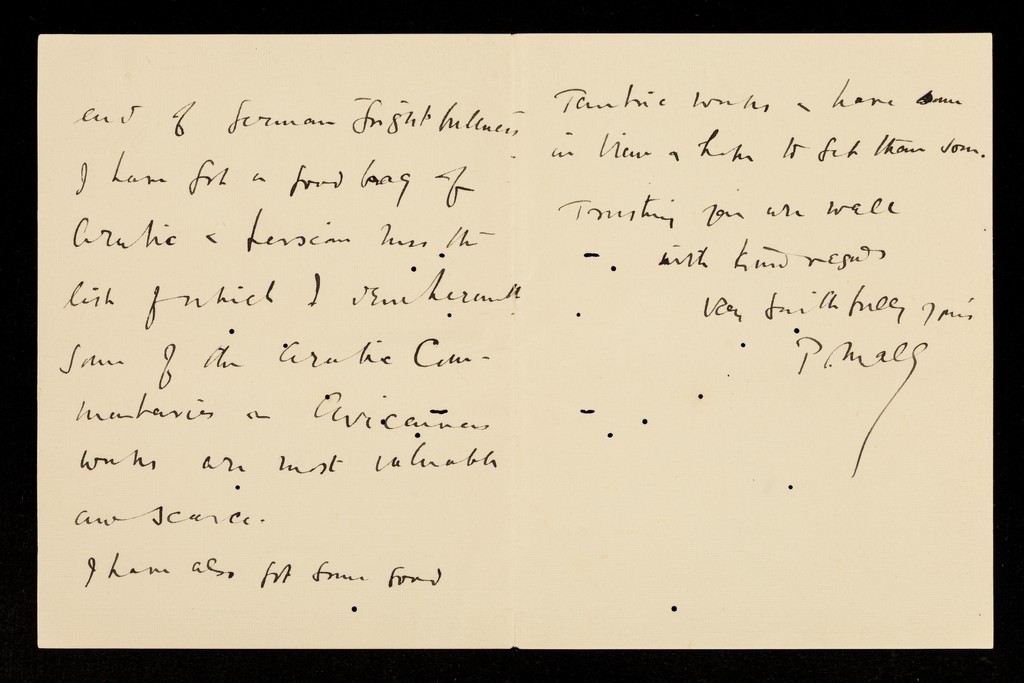 end of German Frightfulness
I have got a good bag of
Arabic & Persian mss the
list of which I send herewith
some of the Arabic Com-
mentaries on Avicennas
works are most valuable
and scarce.
I have also got some good
Tantric works & have some
in view & hope to get them soon.
Trusting you are well
with kind regards
Very faithfully yours
P. Mall